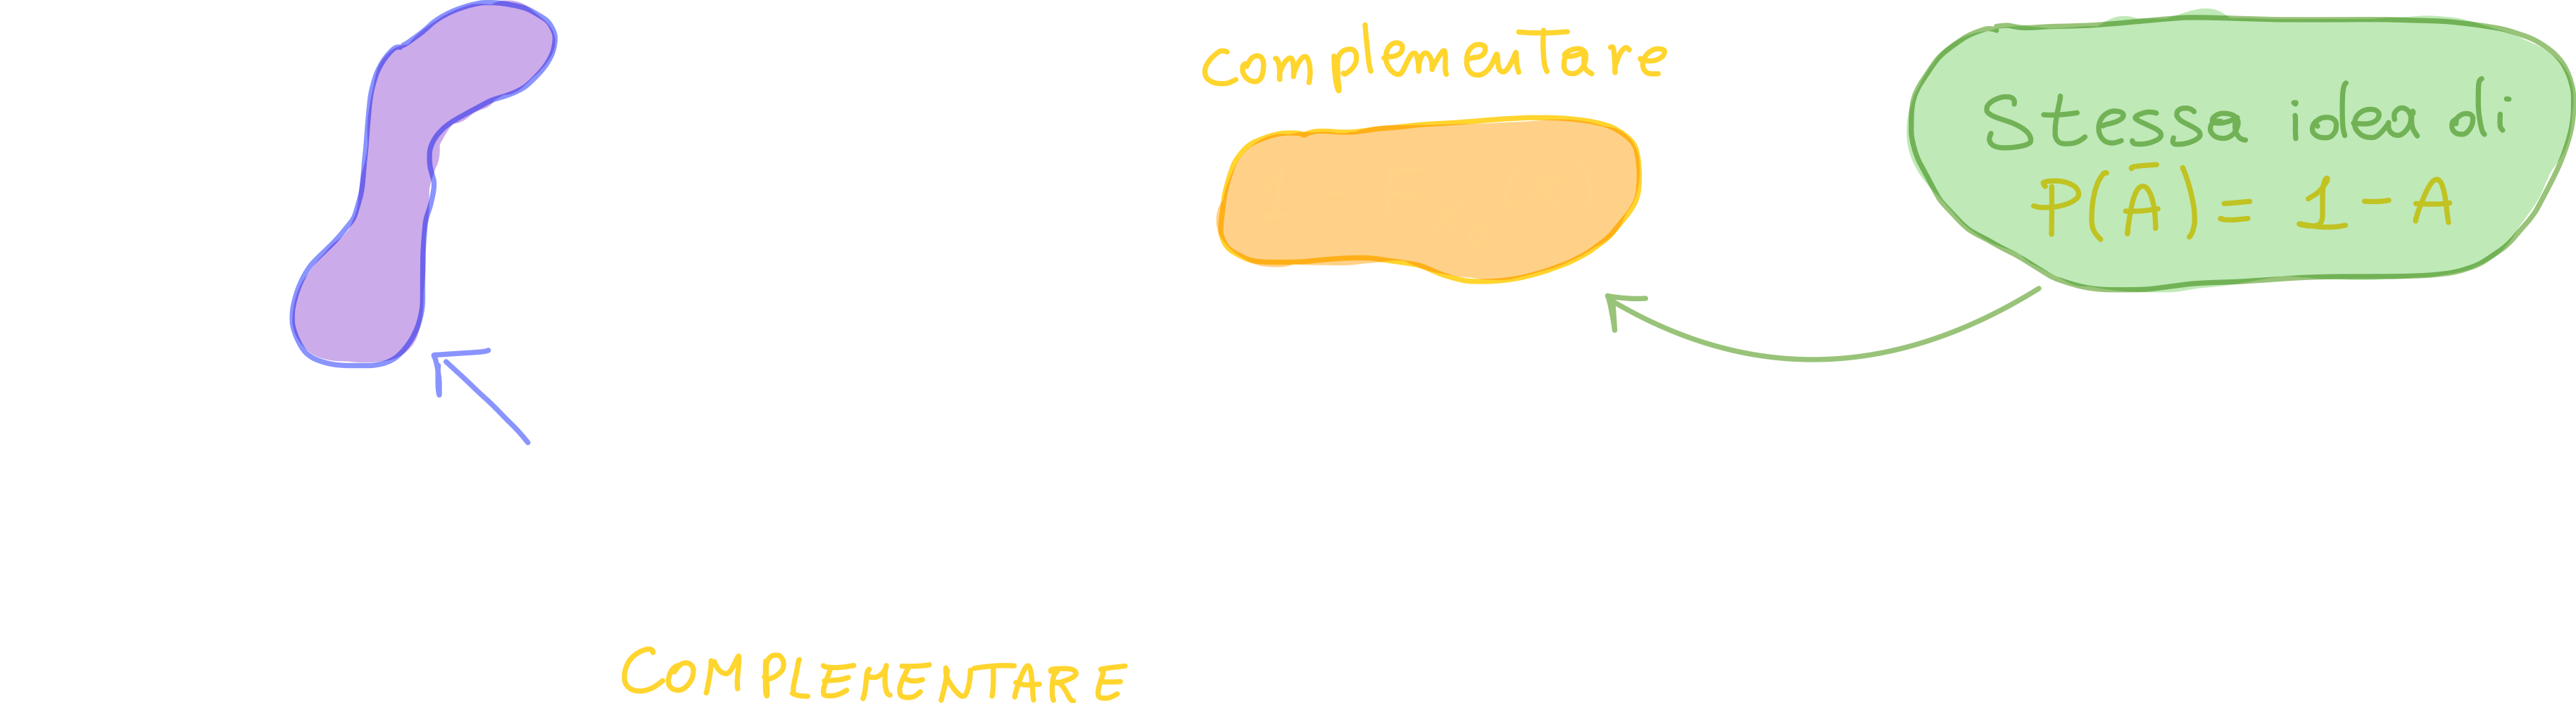 complementare
Stessa idea di
P(Ā) = 1 - A
COMPLEMENTARE